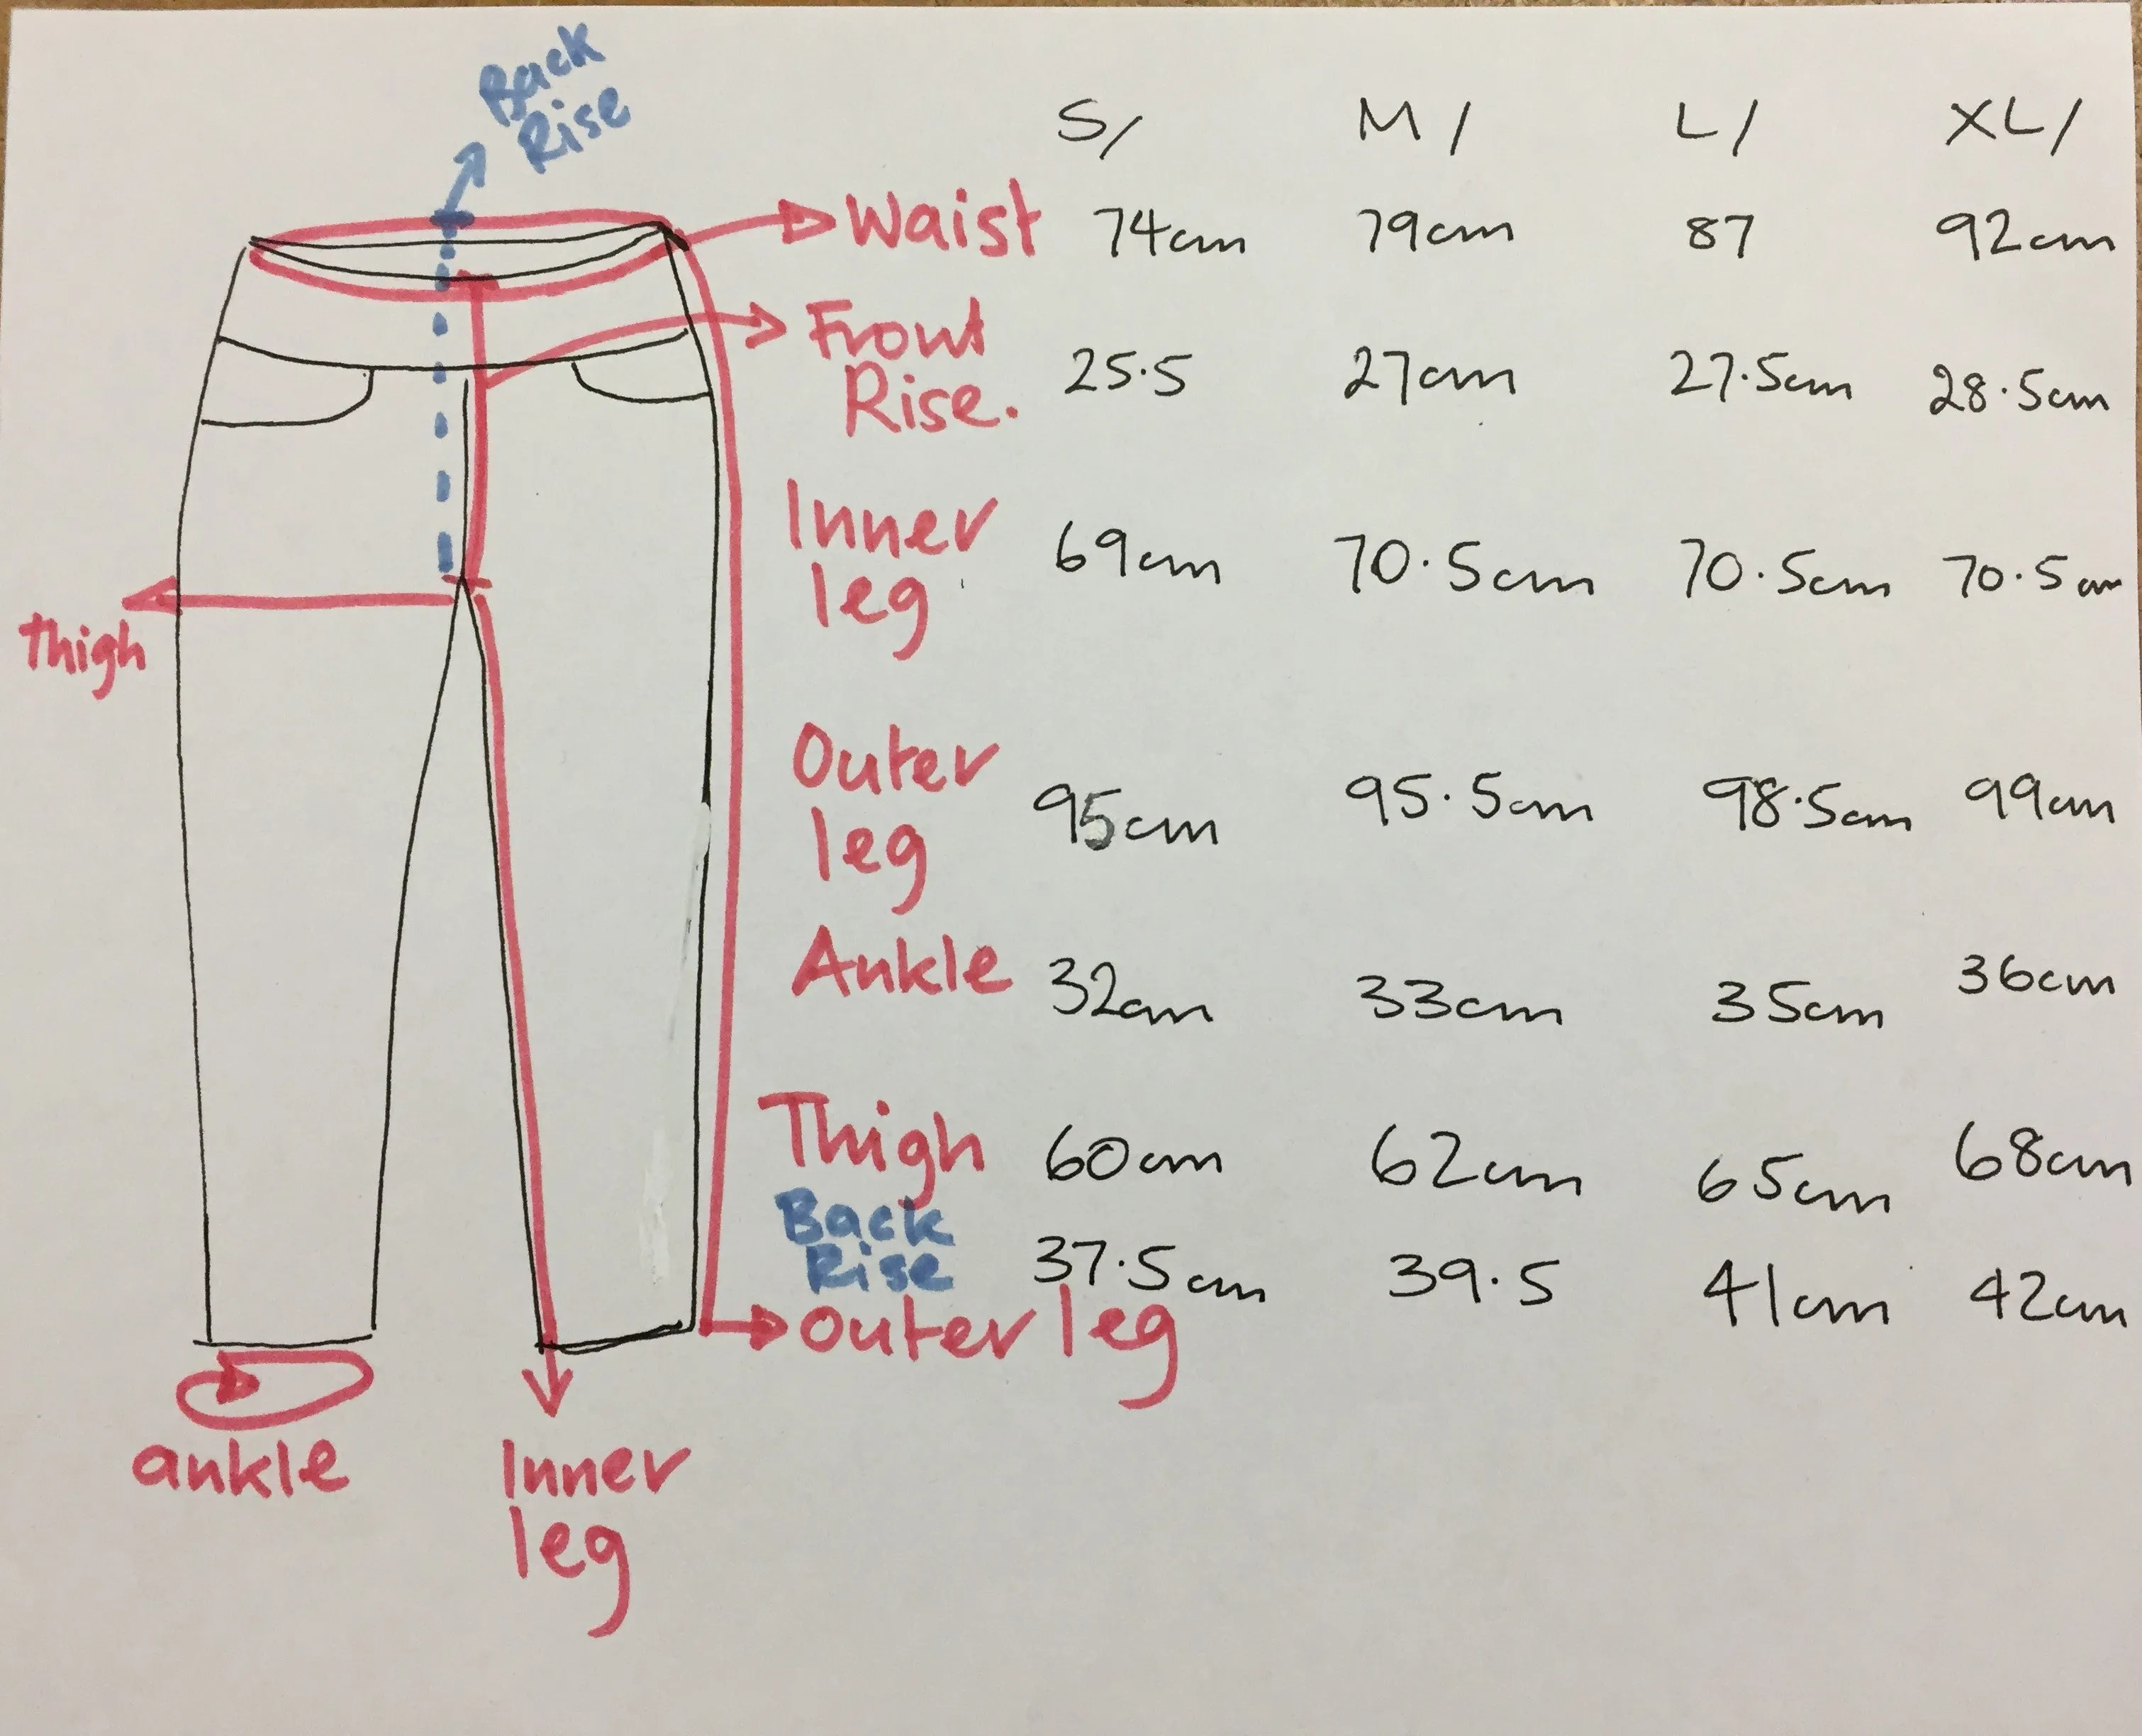 Back
Rise
S/ M/ L/ XL/
Waist 74cm 79cm 87 92cm
Front
Rise. 25.5 27cm 27.5cm 28.5cm
Inner
leg 69cm 70.5cm 70.5cm 70.5cm
Thigh
Outer
leg 95cm 95.5cm 98.5cm 99cm
Ankle 32cm 33cm 35cm 36cm
Thigh 60cm 62cm 65cm 68cm
Back
Rise 37.5cm 39.5 41cm 42cm
Outer leg
ankle
Inner
leg